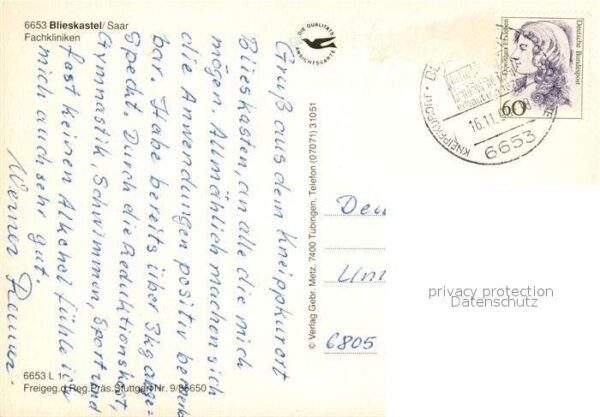 6653 Blieskastel/Saar
Fachkliniken
DIE QUALITÄTS
ANSICHTSKARTE
Gruß aus dem Kneippkurort
Blieskasten, an alle die mich
mögen. Allmählich machen sich
die Anwendungen positiv bemerk
bar. Habe bereits über 3kg abge-
speckt. Durch die Reduktionskost,
Gymnastik, Schwimmen, Sport und
fast keinen Alkohol fühle ich
mich auch sehr gut.
Werner
6653 L
Freigeg.d.Reg.Präs.Stuttgart Nr. 9/86650
© Verlag Gebr. Metz, 7400 Tübingen, Telefon (07071) 31051
Deutsche Bundespost
60
KNEIPPKURORT
16.11.
6653
6805
privacy protection
Datenschutz